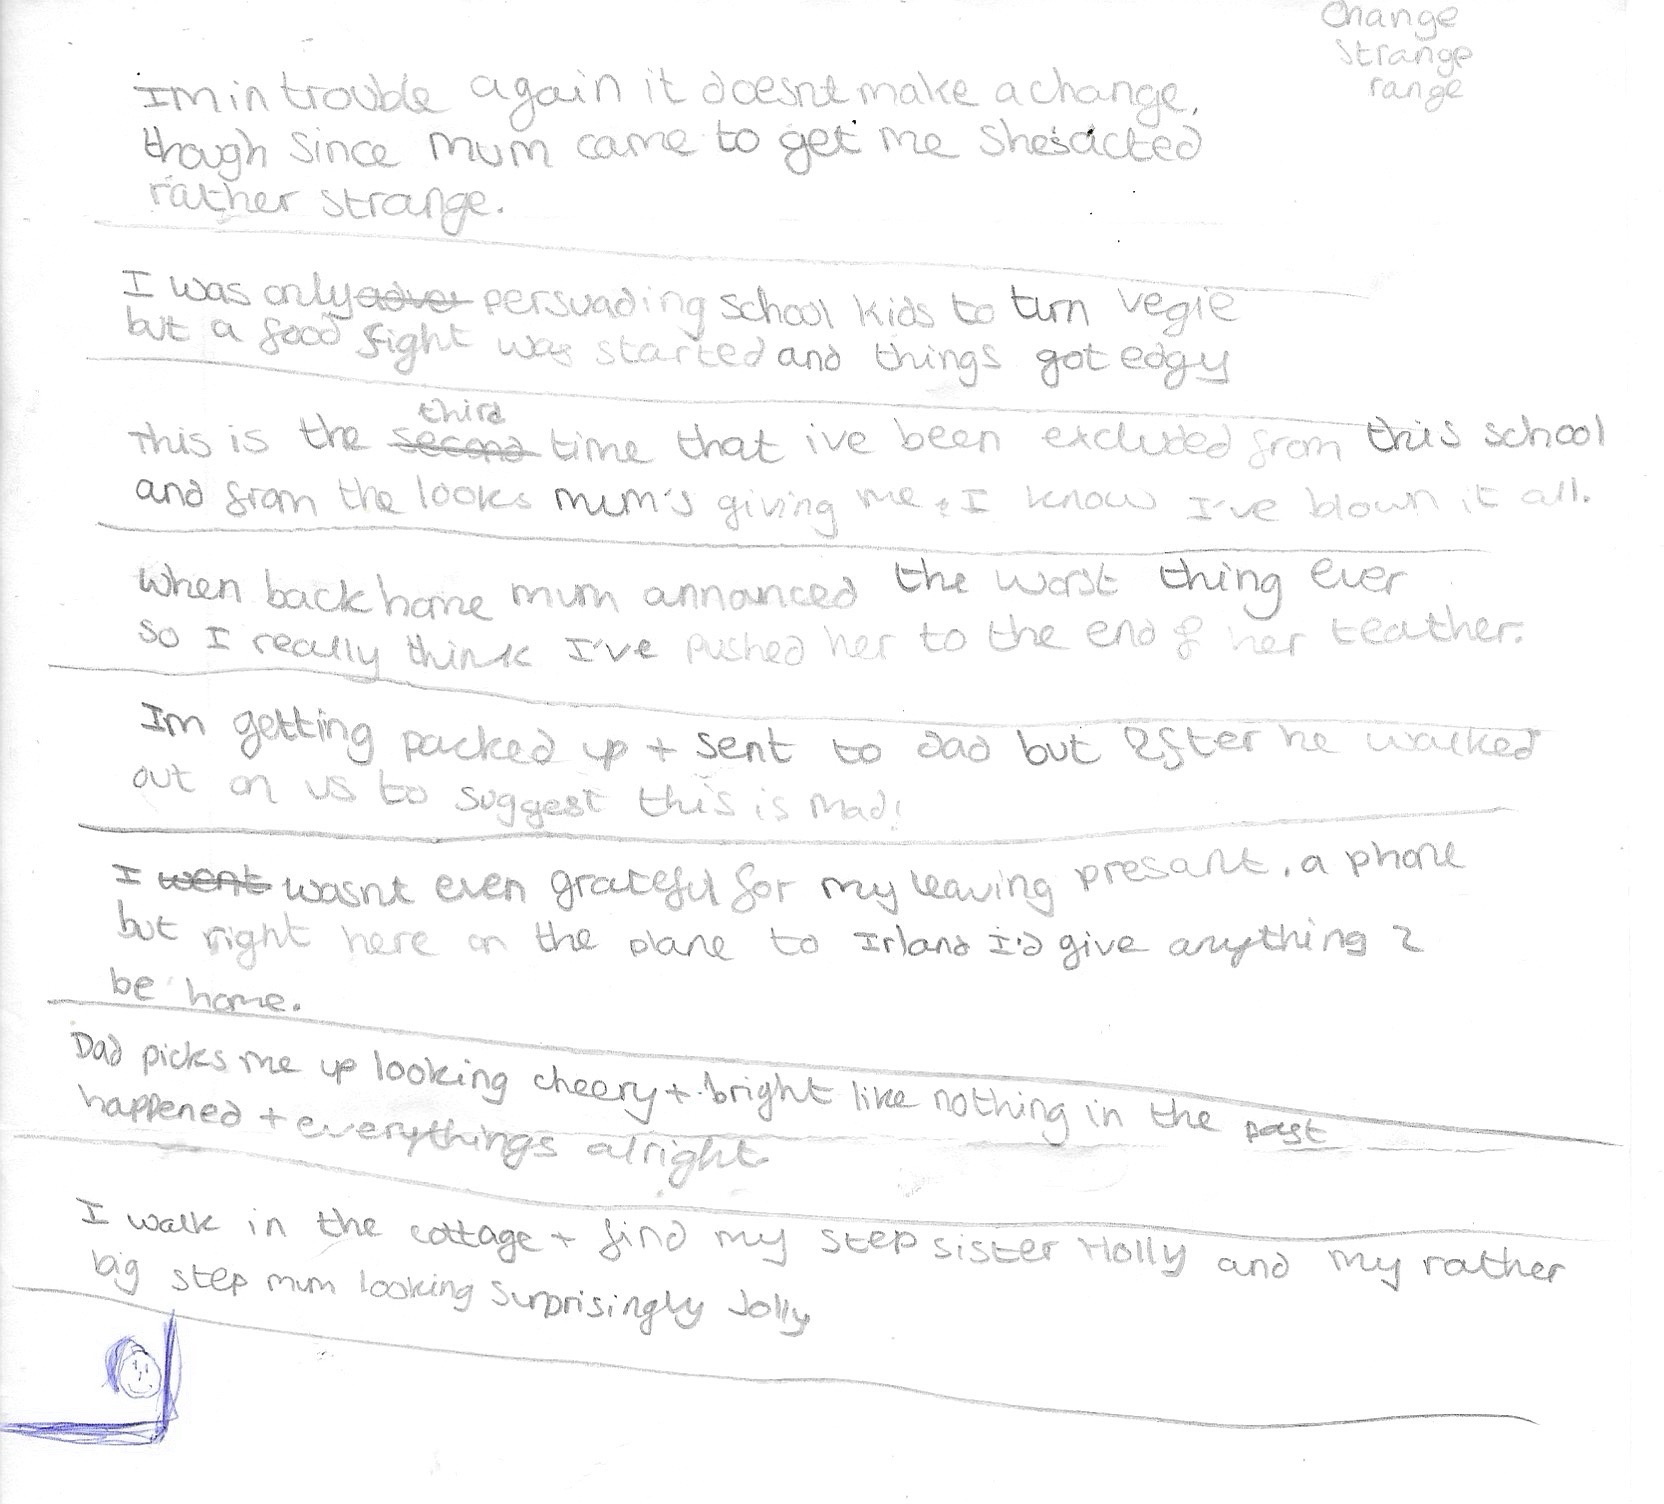 Change
Strange
range
Im in trouble again it doesnt make a change,
though since mum came to get me she's acted
rather strange.
I was only persuading school kids to turn vegie
but a food fight was started and things got edgy
third
This is the second time that ive been excluded from this school
and from the looks mum's giving me, I know I've blown it all.
When back home mum announced the worst thing ever
so I really think I've pushed her to the end of her teather.
Im getting packed up + sent to dad but after he walked
out on us to suggest this is mad!
I went wasnt even grateful for my leaving presant, a phone
but right here on the plane to Irland I'd give anything 2
be home.
Dad picks me up looking cheery + bright like nothing in the past
happened + everythings alright
I walk in the cottage + find my step sister Holly and my rather
big step mum looking surprisingly Jolly